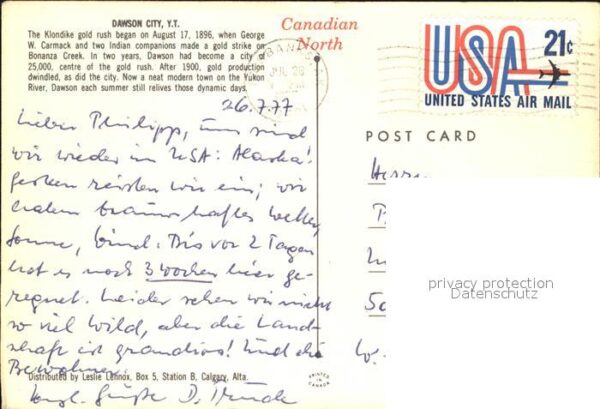 DAWSON CITY, Y.T.
The Klondike gold rush began on August 17, 1896, when George
W. Carmack and two Indian companions made a gold strike on
Bonanza Creek. In two years, Dawson had become a city of
25,000, centre of the gold rush. After 1900, gold production
dwindled, as did the city. Now a neat modern town on the Yukon
River, Dawson each summer still relives those dynamic days.
Canadian
North
USA 21¢
UNITED STATES AIR MAIL
POST CARD
26.7.77
Lieber Philipp, nun sind
wir wieder in USA: Alaska!
Gestern reisten wir ein; wir
haben traumhaftes Wetter,
Sonne, Wind. Bis vor 2 Tagen
hat es noch 3 Wochen hier ge-
regnet. Leider sehen wir nicht
so viel Wild, aber die Land-
schaft ist grandios! Und die
Bewohner.
Distributed by Leslie Lennox, Box 5, Station B, Calgary, Alta.
Herzl. Grüße D.
PRINTED IN CANADA
Herrn
W.
privacy protection
Datenschutz